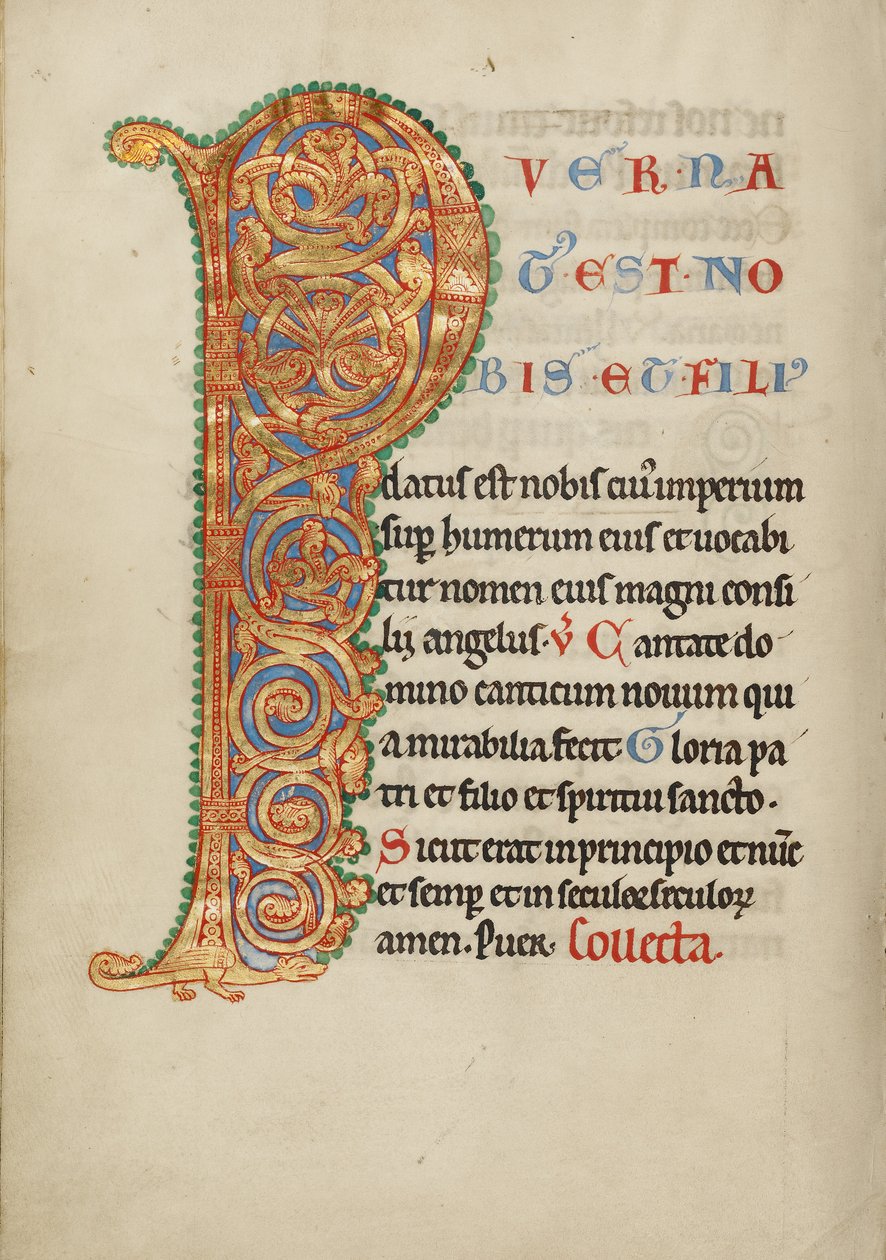 P UER·NA
T·EST·NO
BIS·ET·FILI⁹
datus est nobis cui᷒ imperium
sup̱ humerum eius et uocabi
tur nomen eius magni consi
lij angelus. v̊ Cantate do
mino canticum nouum qui
a mirabilia fecit Gloria pa
tri et filio et spiritui sancto.
Sicut erat in principio et nūc
et semꝑ et in seculoꝝ seculoꝝ
amen. Puer. Collecta.